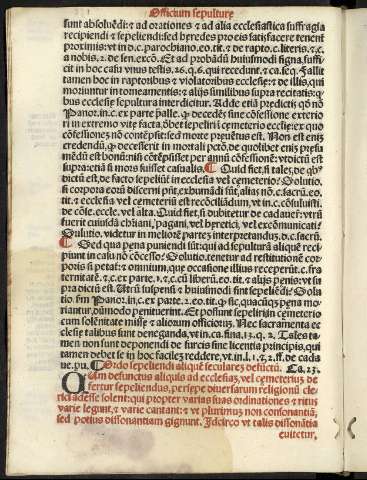 Officium sepulturę
sunt absoluēdi: ⁊ ad orationes ⁊ ad alia ecclesiastica suffragia
recipiendi ⁊ sepeliendi: sed heredes pro eis satisfacere tenent
proximi: vt in d.c. parochiano. eo. tit. ⁊ de rapto. c. literis. ⁊ .c.
a nobis. 2. de sen. excō. Et ad probādū huiusmodi signa, suffi-
cit in hoc casu vnus testis. 26. q. 6. qui recedunt. ⁊ ca. seq. Fallit
tamen hoc in raptoribus ⁊ violatoribus ecclesię: ⁊ de illis, qui
moriuntur in torneamentis: ⁊ alijs similibus supra recitatis: qui-
bus ecclesię sepultura interdicitur. Adde etiā predictis qō nō
Panor. in .c. ex parte palle. ꝙ decedēs sine cōfessione exterio-
ri in extremo vitę facta, dȝ sepeliri in cemeterio ecclesię: ex quo
cōfessionez nō contēpsit: sed morte preuentus est. Non est enim
credendū, ꝙ decesserit in mortali pctō, de quolibet eniȝ presu-
mēdū est bonū: nisi cōtēpsisset per annū cōfessionē: vt dictū est
supra: etiā si mors fuisset casualis. Quid fiet, si tales, de qbꝰ
dictū est, de facto sepeliūt in ecclesia vel cemeterio? Solutio,
si corpora eorū discerni pn̄t, exhumādi sūt, alias nō .c. sacrū. eo.
tit. ⁊ ecclesia vel cemeteriū est recōciliādum, vt in .c. cōsuluisti.
de cōse. eccle. vel alta. Quid fiet, si dubitetur de cadauere: vtrū
fuerit cuiusdā chriani, pagani, vel heretici, vel excōmunicati?
Solutio, videtur in meliorē partez interpretandus, d.c. sacrū.
Sed qua pena puniendi sūt: qui ad sepulturā aliquē reci-
piunt in casu nō cōcesso? Solutio, tenetur ad restitutionē cor-
poris si petaf: ⁊ omnium, que occasione illius receperūt. c. fra-
ternitatē. ⁊ .c. ex parte. 1. ⁊ .c. cū liberū. eo. tit. ⁊ alijs penis: vt su-
pra dictū est. Vtrū suspensi ⁊ huiusmodi sint sepeliēdi? Solu-
tio ſm Panor. in .c. ex parte. 2. eo. tit. ꝙ sic, quacūqȝ pena mo-
riantur, dūmodo peniteant. Et possunt sepeliri in cemeterio
cum solēnitate missę ⁊ aliorum officiorū. Nec sacramenta ec-
clesię talibus sunt deneganda, vt in ca. fina. 13. q. 2. Tales ta-
men non sunt deponendi de furcis sine licentia principis, qui
tamen debet se in hoc facilez reddere, vt in .l. 1. ⁊ 2. ff. de cada-
ue. pu. Ordo sepeliendi aliquē seculareȝ defūctū. Ca. 23.
Cum defunctus aliquis ad ecclesiaȝ, vel cemeterium de-
fertur sepeliendus, persepe diuersarum religionū cle-
rici adesse solent: qui propter varias suas ordinationes ⁊ ritus
varie legunt, ⁊ varie cantant: ⁊ vt plurimum non consonantiā,
sed potius dissonantiam gignunt. Idcirco vt talis dissonātia
euitetur,